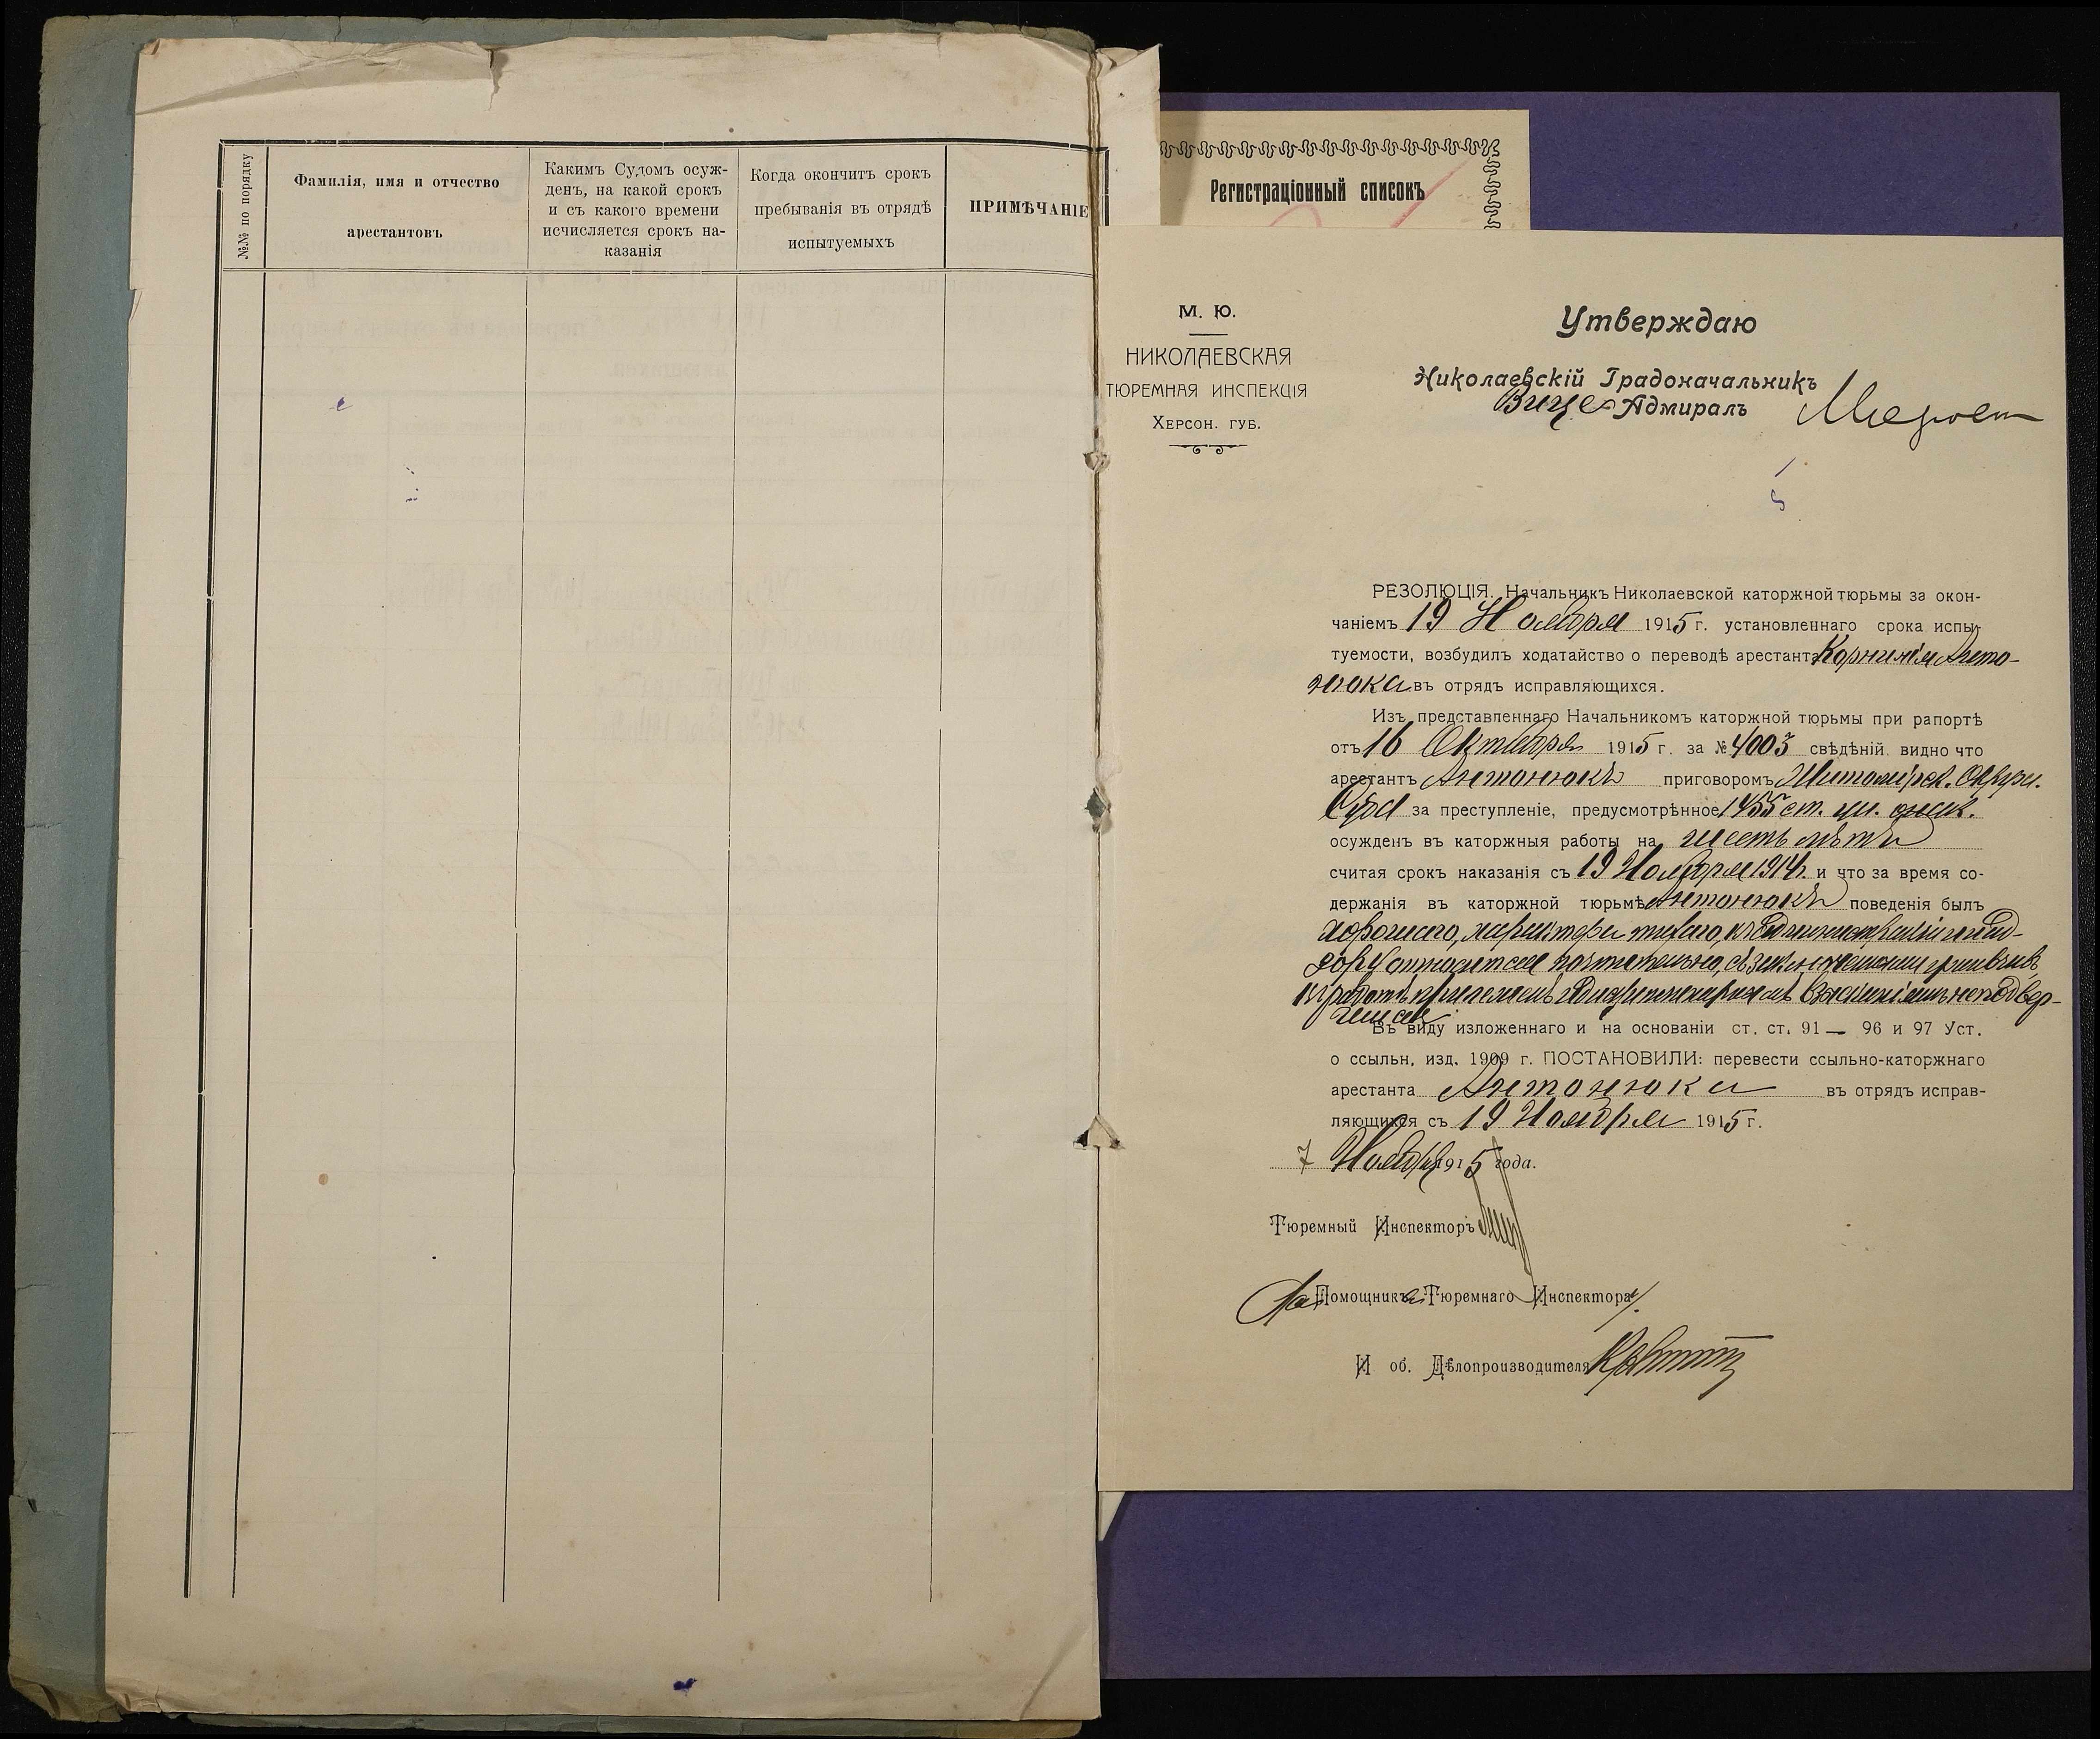 №№ по порядку
Фамилія, имя и отчество
арестантовъ
Какимъ Судомъ осуж-
денъ, на какой срокъ
и съ какого времени
исчисляется срокъ на-
казанія
Когда окончитъ срокъ
пребыванія въ отрядѣ
испытуемыхъ
ПРИМѢЧАНІЕ
Регистраціонный списокъ
М. Ю.
НИКОЛАЕВСКАЯ
ТЮРЕМНАЯ ИНСПЕКЦІЯ
ХЕРСОН. ГУБ.
Утверждаю
Николаевскій Градоначальникъ
Вице-Адмиралъ
РЕЗОЛЮЦІЯ. Начальникъ Николаевской каторжной тюрьмы за окон-
чаніемъ 19 Ноября 1915 г. установленнаго срока испы-
туемости, возбудилъ ходатайство о переводѣ арестанта Корнилія Анто-
нюка въ отрядъ исправляющихся.
Изъ представленнаго Начальникомъ каторжной тюрьмы при рапортѣ
отъ 16 Октября 1915 г. за № 4003 свѣдѣній видно что
арестантъ Антонюкъ приговоромъ Житомірск. Окружн.
Суда за преступленіе, предусмотрѣнное 1455 ст. ул. о нак.
осужденъ въ каторжныя работы на шесть лѣтъ
считая срокъ наказанія съ 19 Ноября 1914 г. и что за время со-
держанія въ каторжной тюрьмѣ Антонюкъ поведенія былъ
хорошаго, характера тихаго, къ администраціи и над-
зору относится почтительно, съ заключенными
къ работѣ прилеженъ и дисциплинарнымъ взысканіямъ не подвер-
гался
Въ виду изложеннаго и на основаніи ст. ст. 91 — 96 и 97 Уст.
о ссыльн. изд. 1909 г. ПОСТАНОВИЛИ: перевести ссыльно-каторжнаго
арестанта Антонюка въ отрядъ исправ-
ляющихся съ 19 Ноября 1915 г.
7 Ноября 1915 года.
Тюремный Инспекторъ
За Помощника Тюремнаго Инспектора
И об. Дѣлопроизводителя